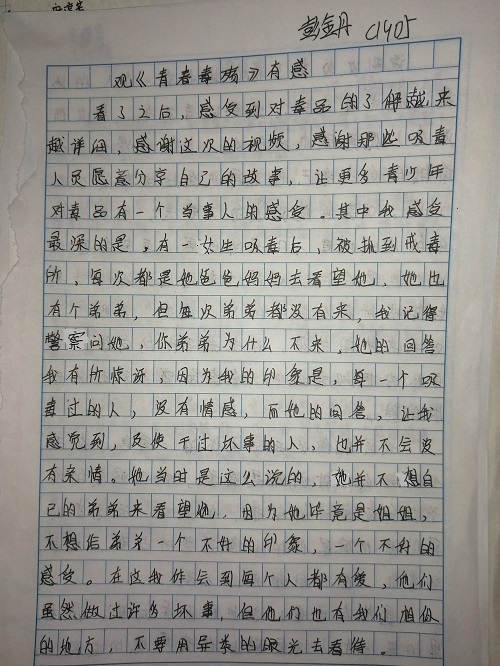 彭金丹 C1405
观《青春毒殇》有感
看了之后，感受到对毒品的了解越来
越详细，感谢这次的视频，感谢那些吸毒
人员愿意分享自己的故事，让更多青少年
对毒品有一个当事人的感受。其中我感受
最深的是，有一女生吸毒后，被抓到戒毒
所，每次都是她爸爸妈妈去看望她，她也
有个弟弟，但每次弟弟都没有来，我记得
警察问她，你弟弟为什么不来，她的回答
我有所惊讶，因为我的印象是，每一个吸
毒过的人，没有情感，而她的回答，让我
感觉到，及使干过坏事的人，也并不会没
有亲情。她当时是这么说的，她并不想自
己的弟弟来看望她，因为她毕竟是姐姐，
不想给弟弟一个不好的印象，一个不好的
感受。在这我体会到每个人都有爱，他们
虽然做过许多坏事，但他们也有我们相似
的地方，不要用异类的眼光去看待。